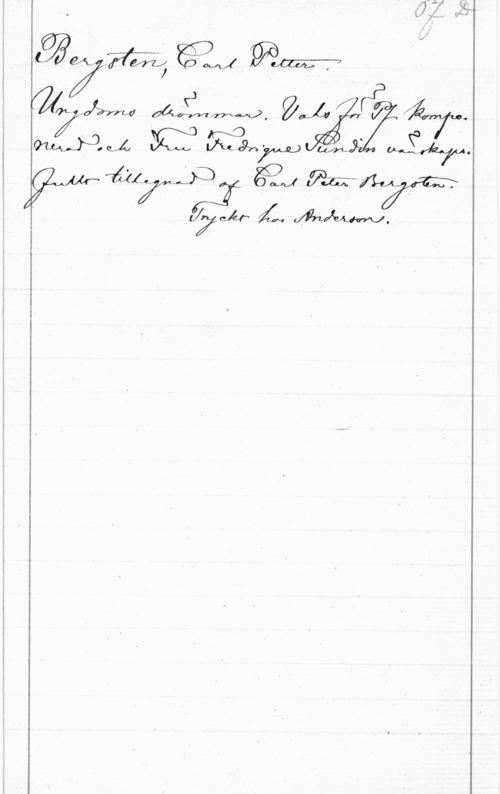 Of D
Bergsten, Carl Petter.
Ungdoms drömmar. Vals för Pf. kompo-
nerad och Fru Fredrique Sundin vänskaps-
fullt tillegnad af Carl Peter Bergsten.
Tryckt hos Anderson.